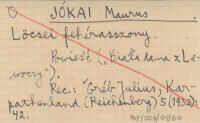 JÓKAI Maurus
Lőcsei fehérasszony.
Powieść („Biała dama z Le-
woczy").
Rec.: Gréb Julius, Kar-
pathenland (Reichenberg) 5 (1932):
42.